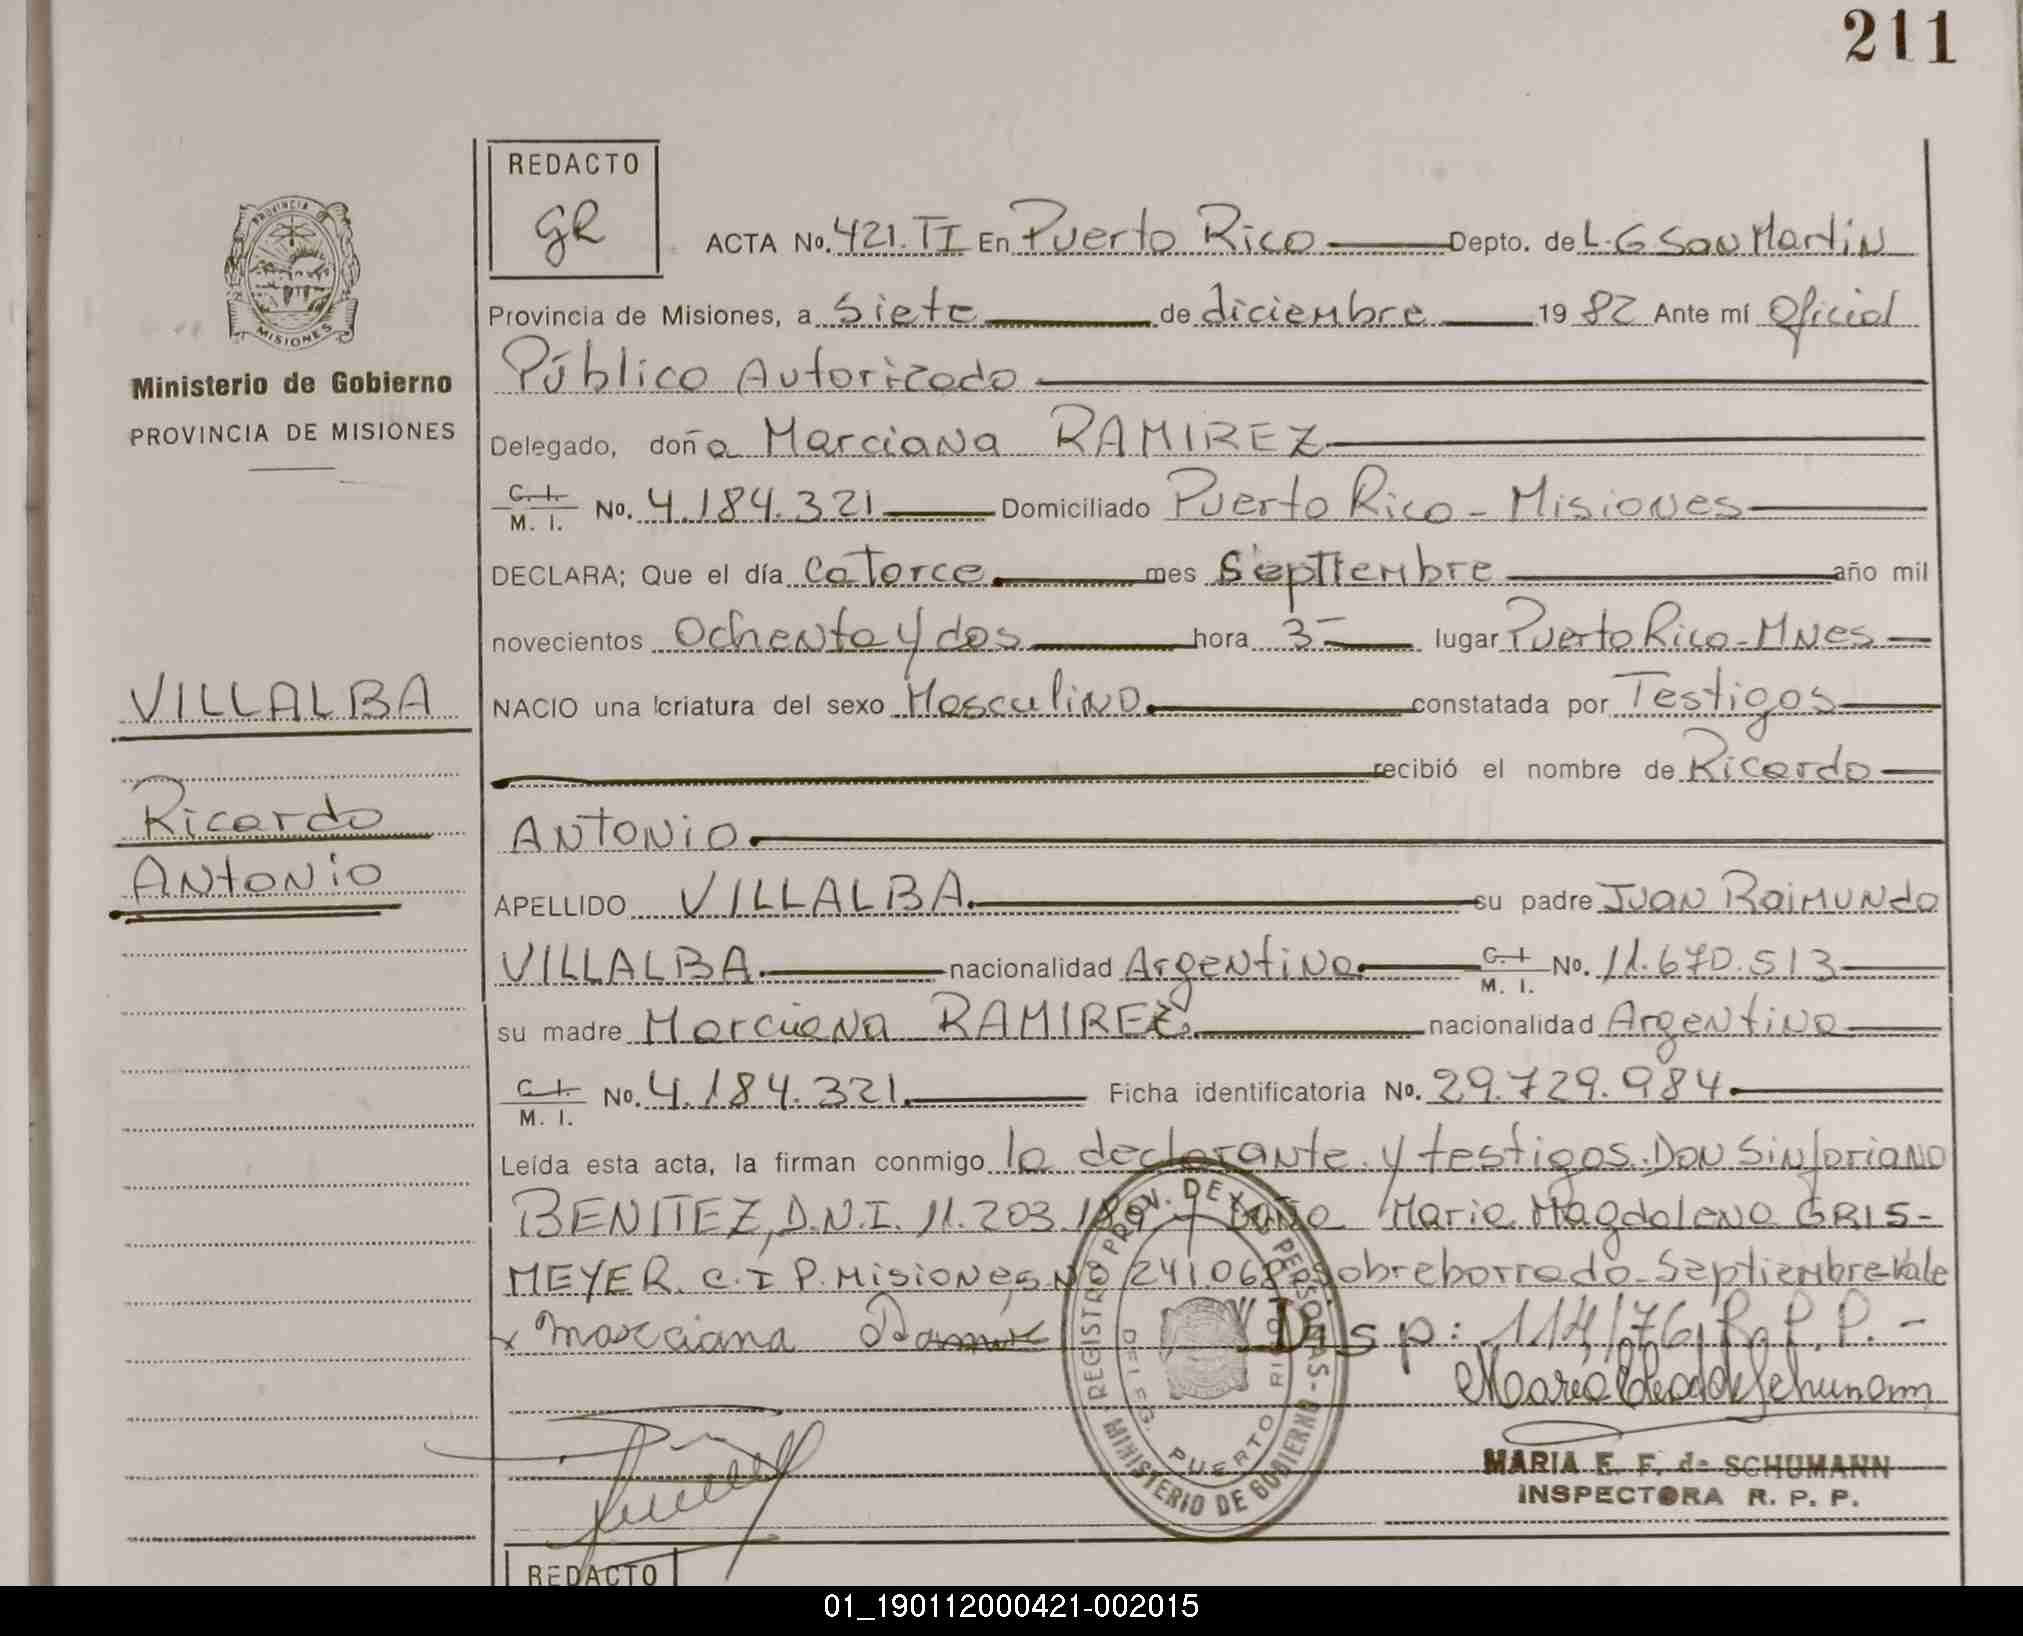 211
REDACTO
GR
PROVINCIA DE
MISIONES
Ministerio de Gobierno
PROVINCIA DE MISIONES
VILLALBA
Ricardo
Antonio
ACTA No. 421. TI En Puerto Rico Depto. de L. G San Martin
Provincia de Misiones, a siete de diciembre 1982 Ante mí Oficial
Público Autorizado
Delegado, doña Marciana RAMIREZ
C. I. / M. I. No. 4.184.321 Domiciliado Puerto Rico - Misiones
DECLARA; Que el día catorce mes Septiembre año mil
novecientos Ochenta y dos hora 3- lugar Puerto Rico-Mnes
NACIO una criatura del sexo Masculino constatada por Testigos
recibió el nombre de Ricardo
Antonio
APELLIDO VILLALBA su padre Juan Raimundo
VILLALBA nacionalidad Argentina C. I. / M. I. No. 11.670.513
su madre Marciana RAMIREZ nacionalidad Argentina
C. I. / M. I. No. 4.184.321 Ficha identificatoria No. 29.729.984
Leída esta acta, la firman conmigo la declarante y testigos. Don Sinforiano
BENITEZ, D.N.I. 11.203. y Doña Maria Magdalena GRIS-
MEYER. C. I P. Misiones, No 241.068 Sobreborrado. Septiembre Vale
x Marciana Ramirez "Disp: 114/76, R.P.P.-
REGISTRO PROV. DE LAS PERSONAS - MINISTERIO DE GOBIERNO
DELEG. PUERTO RICO
MARIA E. F. de SCHUMANN
INSPECTORA R. P. P.
REDACTO
01_190112000421-002015